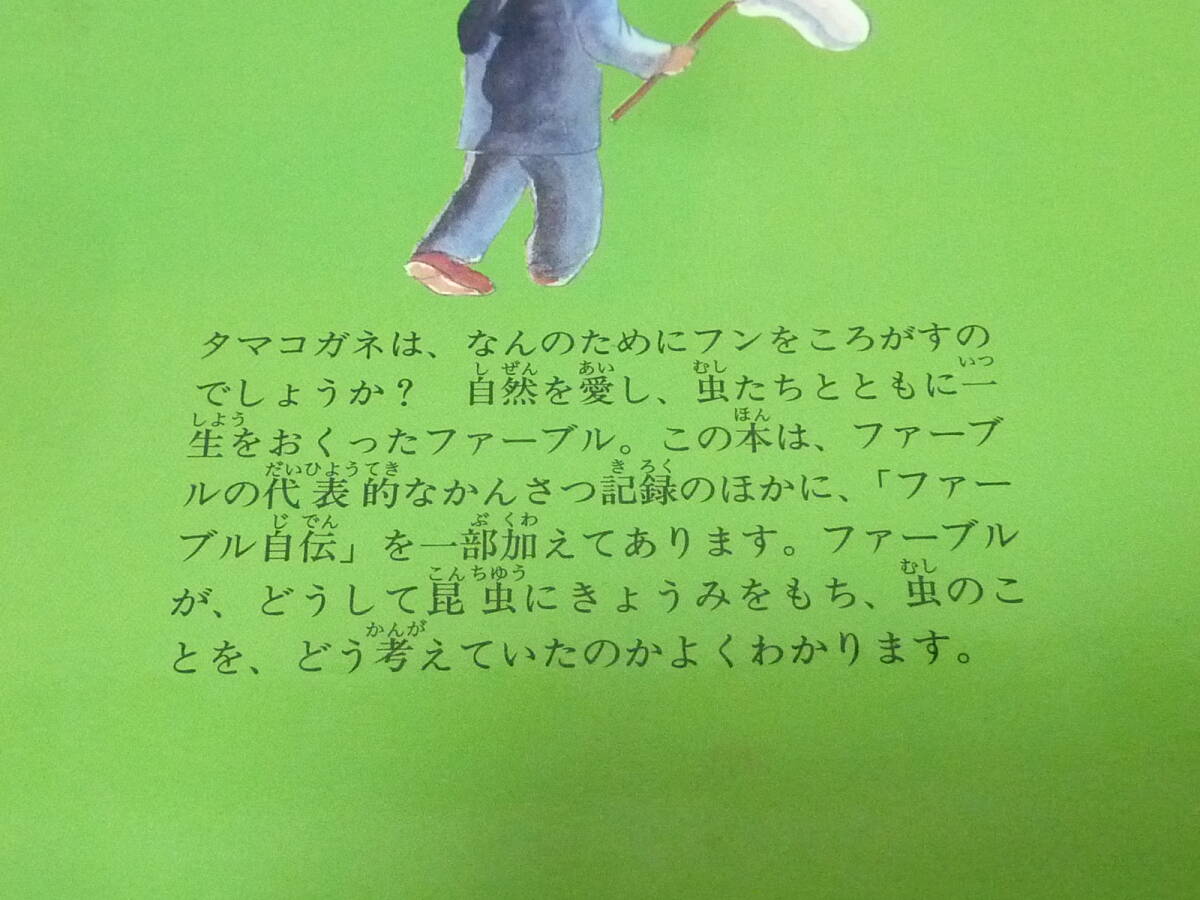 タマコガネは、なんのためにフンをころがすの
でしょうか？　自然を愛し、虫たちとともに一
生をおくったファーブル。この本は、ファーブ
ルの代表的なかんさつ記録のほかに、「ファー
ブル自伝」を一部加えてあります。ファーブル
が、どうして昆虫にきょうみをもち、虫のこ
とを、どう考えていたのかよくわかります。